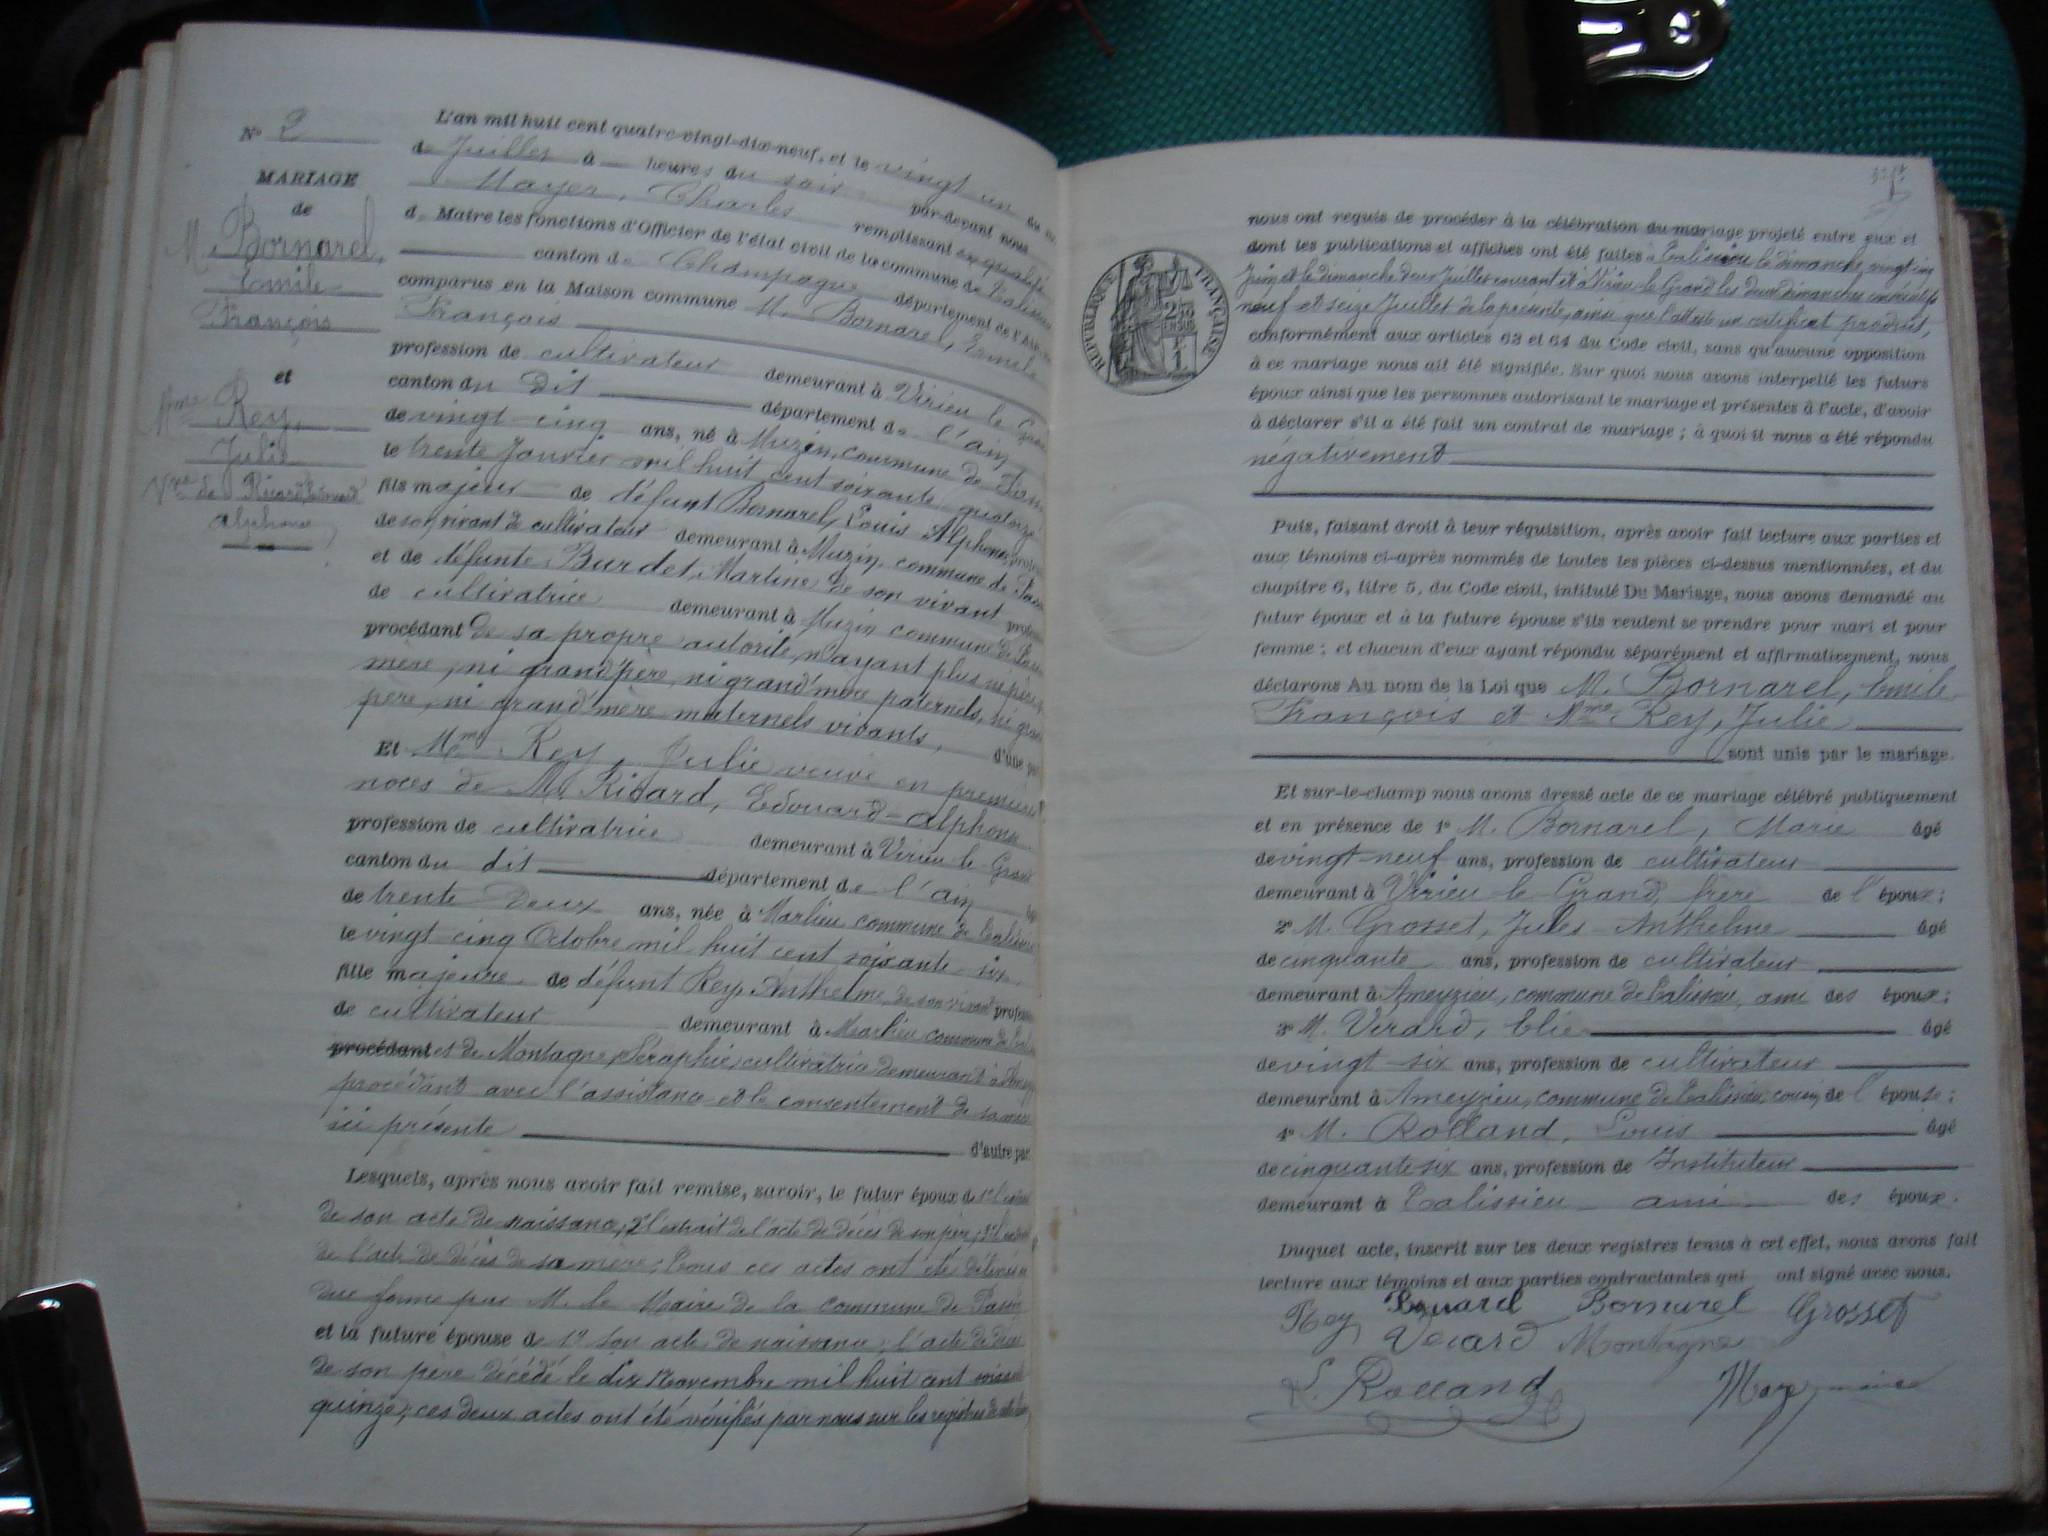 N° 2
MARIAGE
de
M. Bornarel,
Emile
François
et
Mme Rey,
Julie
Vve de Ricard, Edouard
alphonse
L'an mil huit cent quatre-vingt-dix-neuf, et le vingt un du
de Juillet à heures du soir par-devant nous
Mayer, Charles remplissant en qualité
de Maire les fonctions d'Officier de l'état civil de la commune de Talissieu
canton de Champagne département de l'Ain
comparus en la Maison commune M. Bornarel, Emile
François
profession de cultivateur demeurant à Virieu le Grand
canton du dit département de l'ain
de vingt-cinq ans, né à Muzin, commune de
le trente Janvier mil huit cent soixante quatorze
fils majeur de défunt Bornarel, Louis Alphonse,
de son vivant de cultivateur demeurant à Muzin, commune de
et de défunte Burdet, Martine de son vivant profession
de cultivatrice demeurant à Muzin commune de
procédant de sa propre autorité, n'ayant plus ni père, ni
mère, ni grand'père, ni grand'mère paternels, ni grand
père, ni grand'mère maternels vivants, d'une part
Et Mme Rey, Julie veuve en premières
noces de M. Ricard, Edouard-alphonse
profession de cultivatrice demeurant à Virieu le Grand
canton du dit département de l'ain
de trente deux ans, née à Marlieu, commune de Talissieu
le vingt cinq Octobre mil huit cent soixante-six
fille majeure de défunt Rey, Anthelme, de son vivant profession
de cultivateur demeurant à Marlieu commune de
procédant et de Montagne, Séraphie, cultivatrice demeurant à
procédant avec l'assistance et le consentement de sa mère
ici présente d'autre part.
Lesquels, après nous avoir fait remise, savoir, le futur époux de 1° l'extrait
de son acte de naissance, 2° l'extrait de l'acte de décès de son père, 3° l'extrait
de l'acte de décès de sa mère; Tous ces actes ont été délivrés en
due forme par M. le Maire de la commune de
et la future épouse de 1° son acte de naissance; l'acte de décès
de son père décédé le dix Novembre mil huit cent soixante
quinze; ces deux actes ont été vérifiés par nous sur les registres de
nous ont requis de procéder à la célébration du mariage projeté entre eux et
dont les publications et affiches ont été faites à Talissieu le dimanche vingt cinq
Juin et le dimanche deux Juillet courant et à Virieu-le-Grand les deux dimanches consécutifs
neuf et seize Juillet de la présente, ainsi que l'atteste un certificat produit,
conformément aux articles 63 et 64 du Code civil, sans qu'aucune opposition
à ce mariage nous ait été signifiée. Sur quoi nous avons interpellé les futurs
époux ainsi que les personnes autorisant le mariage et présentes à l'acte, d'avoir
à déclarer s'il a été fait un contrat de mariage; à quoi il nous a été répondu
négativement
RÉPUBLIQUE FRANÇAISE
Puis, faisant droit à leur réquisition, après avoir fait lecture aux parties et
aux témoins ci-après nommés de toutes les pièces ci-dessus mentionnées, et du
chapitre 6, titre 5, du Code civil, intitulé Du Mariage, nous avons demandé au
futur époux et à la future épouse s'ils veulent se prendre pour mari et pour
femme; et chacun d'eux ayant répondu séparément et affirmativement, nous
déclarons Au nom de la Loi que M. Bornarel, Emile
François et Mme Rey, Julie
sont unis par le mariage.
Et sur-le-champ nous avons dressé acte de ce mariage célébré publiquement
et en présence de 1° M. Bornarel, Marie âgé
de vingt-neuf ans, profession de cultivateur
demeurant à Virieu le Grand, frère de l'époux;
2° M. Grosset, Jules-Anthelme âgé
de cinquante ans, profession de cultivateur
demeurant à Ameyzieu, commune de Talissieu, ami des époux;
3° M. Vérard, Elie âgé
de vingt-six ans, profession de cultivateur
demeurant à Ameyzieu, commune de Talissieu, cousin, de l'épouse;
4° M. Rolland, Louis âgé
de cinquante six ans, profession de Instituteur
demeurant à Talissieu ami des époux.
Duquel acte, inscrit sur les deux registres tenus à cet effet, nous avons fait
lecture aux témoins et aux parties contractantes qui ont signé avec nous.
Rey Bornarel Grosset
Verard Montagne
L. Rolland